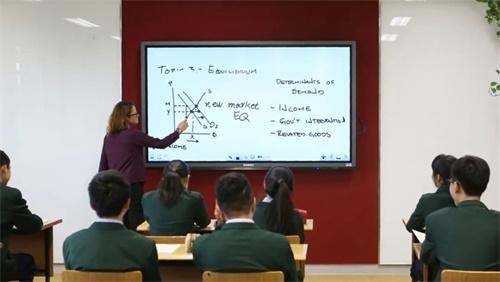 TOPIC 2 - EQUILIBRIUM
P
S
M
Y
new market
EQ
D2
Q
X
DETERMINANTS OF
DEMAND
- INCOME
- GOV'T INTERVENTION
- RELATED GOODS